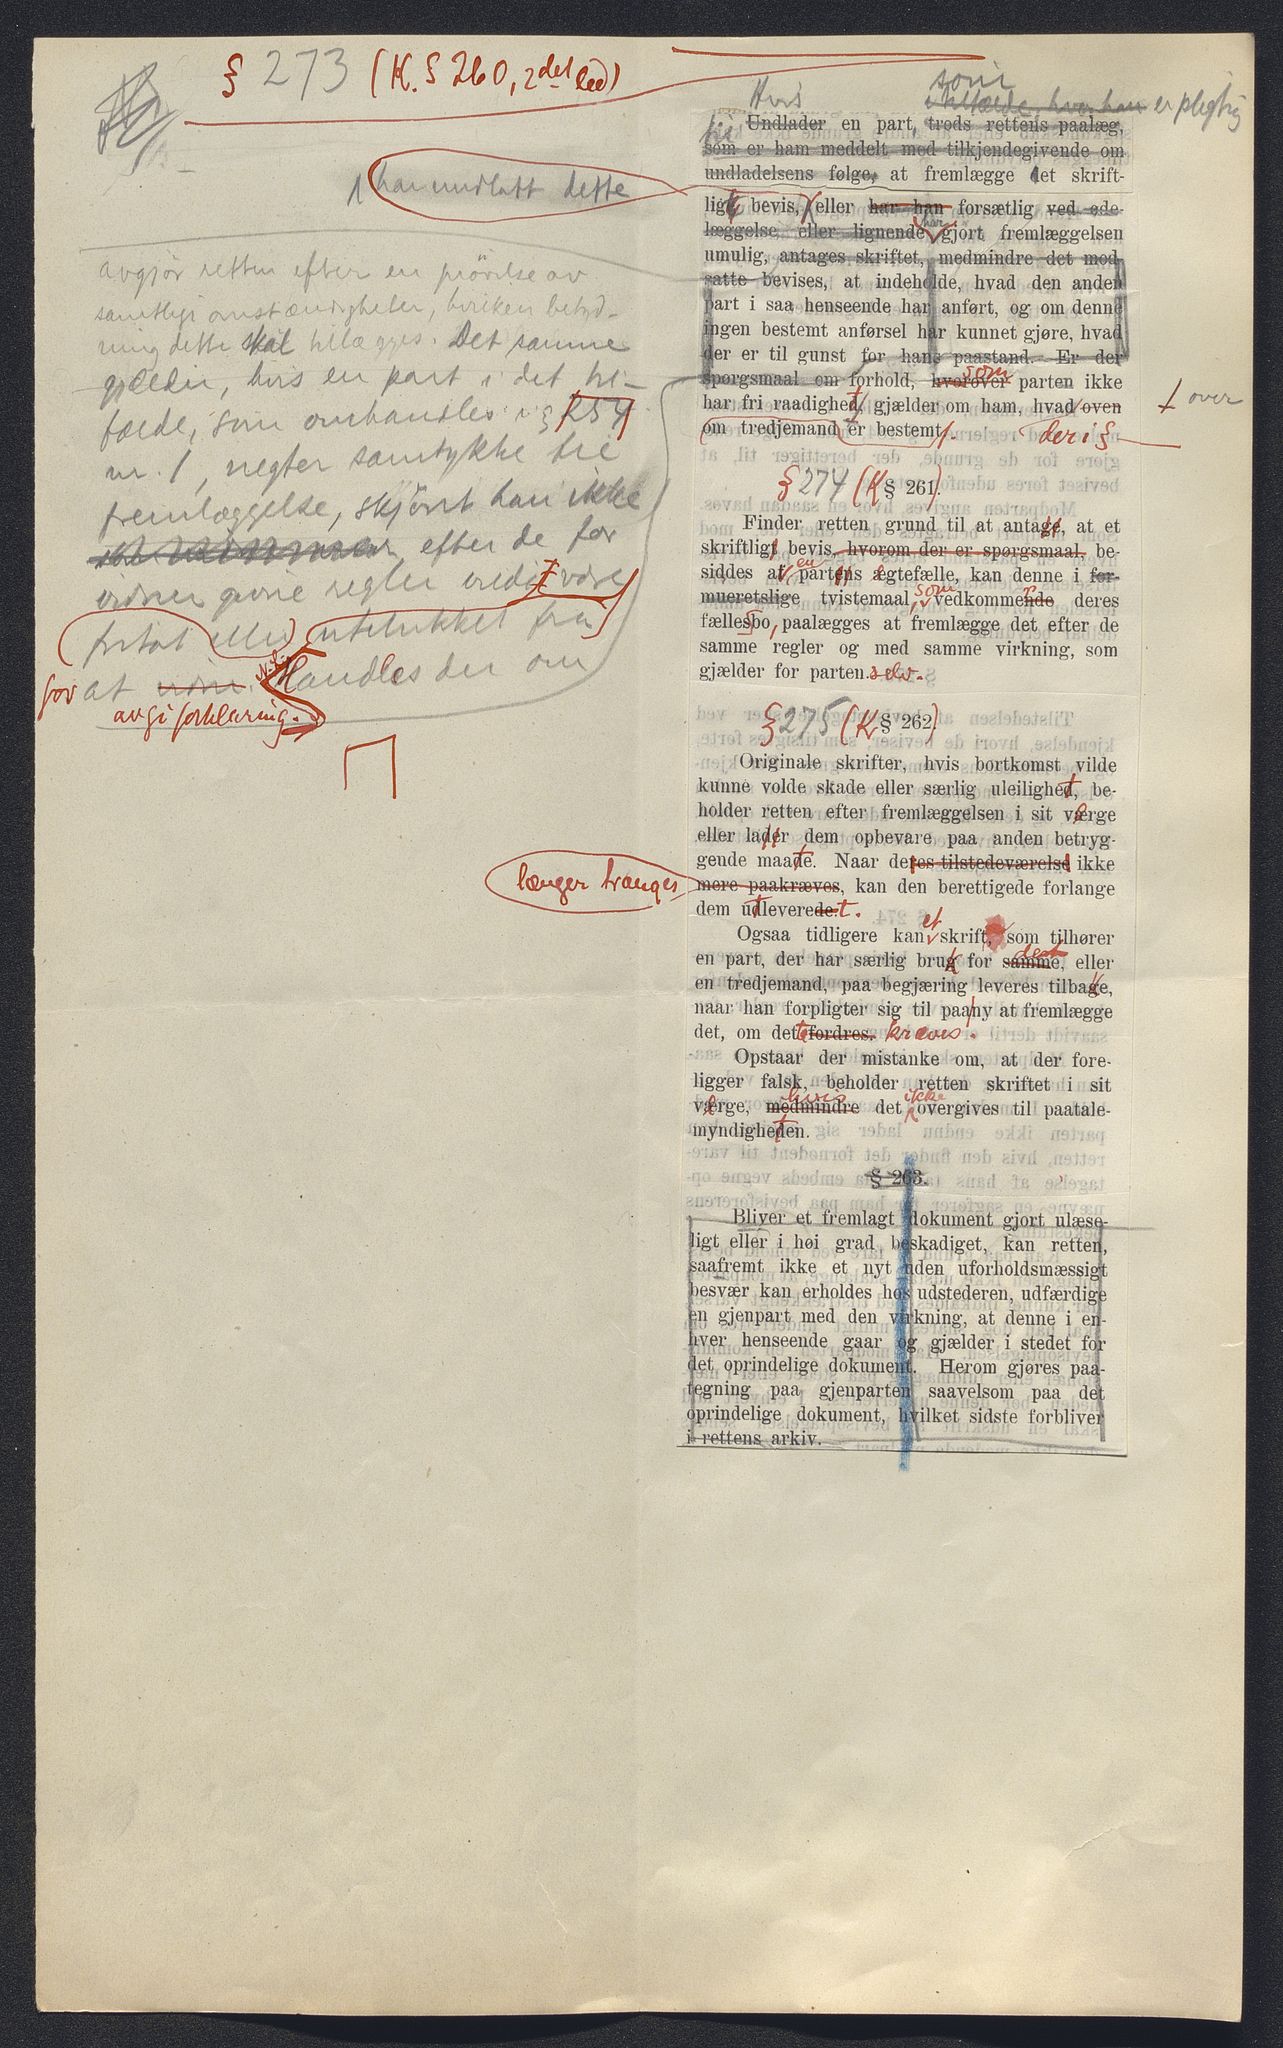 § 273 (K. § 260, 2det led)
Hvis
som
i tilfælde, hvor han er pligtig
til
Undlader en part, trods rettens paalæg,
som er ham meddelt med tilkjendegivende om
undladelsens følge, at fremlægge det skrift-
har undlatt dette
lige bevis, eller har han forsætlig ved øde-
læggelse eller lignende har gjort fremlæggelsen
umulig, antages skriftet, medmindre det mod-
satte bevises, at indeholde, hvad den anden
part i saa henseende har anført, og om denne
ingen bestemt anførsel har kunnet gjøre, hvad
der er til gunst for hans paastand. Er der
spørgsmaal om forhold, hvorover som parten ikke
har fri raadighed gjælder om ham, hvad oven
over
om tredjemand er bestemt. der i §
avgjør retten efter en prövelse av
samtlige omstændigheter, hvilken betyd-
ning dette skal tillægges. Det samme
gjælder, hvis en part i det til-
fælde, som omhandles i § 254
nr. 1, negter samtykke til
fremlæggelse, skjönt han ikke
efter de for
vidner givne regler vilde være
fritat eller utelukket fra
for at vidne. Handles der om
avgi forklaring.
§ 274 (K § 261).
Finder retten grund til at antage, at et
skriftligt bevis, hvorom der er spørgsmaal, be-
siddes af en partens ægtefælle, kan denne i for-
mueretslige tvistemaal, som vedkommende deres
fællesbo, paalægges at fremlægge det efter de
samme regler og med samme virkning, som
gjælder for parten selv.
§ 275 (K § 262).
Originale skrifter, hvis bortkomst vilde
kunne volde skade eller særlig uleilighed, be-
holder retten efter fremlæggelsen i sit værge
eller lader dem opbevare paa anden betryg-
gende maade. Naar deres tilstedeværelse ikke
længer trænges
mere paakræves, kan den berettigede forlange
dem udleverede t.
Ogsaa tidligere kan et skrift, som tilhører
en part, der har særlig brug for samme, det eller
en tredjemand, paa begjæring leveres tilbage,
naar han forpligter sig til paany at fremlægge
det, om dette fordres. kræves.
Opstaar der mistanke om, at der fore-
ligger falsk, beholder retten skriftet i sit
værge, medmindre hvis det ikke overgives til paatale-
myndigheden.
§ 263.
Bliver et fremlagt dokument gjort ulæse-
ligt eller i høi grad beskadiget, kan retten,
saafremt ikke et nyt uden uforholdsmæssigt
besvær kan erholdes hos udstederen, udfærdige
en gjenpart med den virkning, at denne i en-
hver henseende gaar og gjælder i stedet for
det oprindelige dokument. Herom gjøres paa-
tegning paa gjenparten saavelsom paa det
oprindelige dokument, hvilket sidste forbliver
i rettens arkiv.